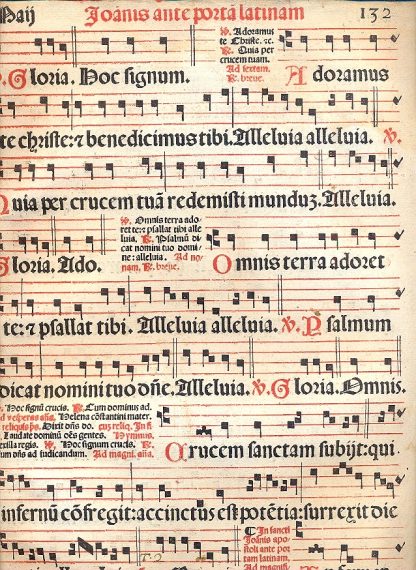 Maij Joānis ante portā latinam 132
℣. Adoramus
te Christe. ⁊c.
℟. Quia per
crucem tuam.
Ad sextam.
℟. breve.
℣. Gloria. Hoc signum. Adoramus
te christe: ⁊ benedicimus tibi. Alleluia alleluia. ℣.
Quia per crucem tuā redemisti mundū. Alleluia.
℣. Omnis terra ado-
ret te: ⁊ psallat tibi alle
luia. ℟. Psalmū di-
cat nomini tuo domi-
ne: alleluia. Ad no-
nam. ℟. breve.
Gloria. Ado. Omnis terra adoret
te: ⁊ psallat tibi. Alleluia alleluia. ℣. Psalmum
dicat nomini tuo dn̄e. Alleluia. ℣. Gloria. Omnis.
Hoc signū crucis. ℟. Cum dominus ad.
ad vesperas añ. Helena cōstantini mater.
reliqui ps. Dixit dn̄s do. cuȝ reliq. In fi
Laudate dominū oēs gentes. Hymnus.
vexilla regis. ℣. Hoc signum crucis. ℟.
cum dn̄s ad iudicandum. Ad magni. añā.
Crucem sanctam subijt: qui
infernū cōfregit: accinctus est potētia: surrexit die
In sancti
Joānis apo-
stoli ante por
tam latinam.
Ad magnifi